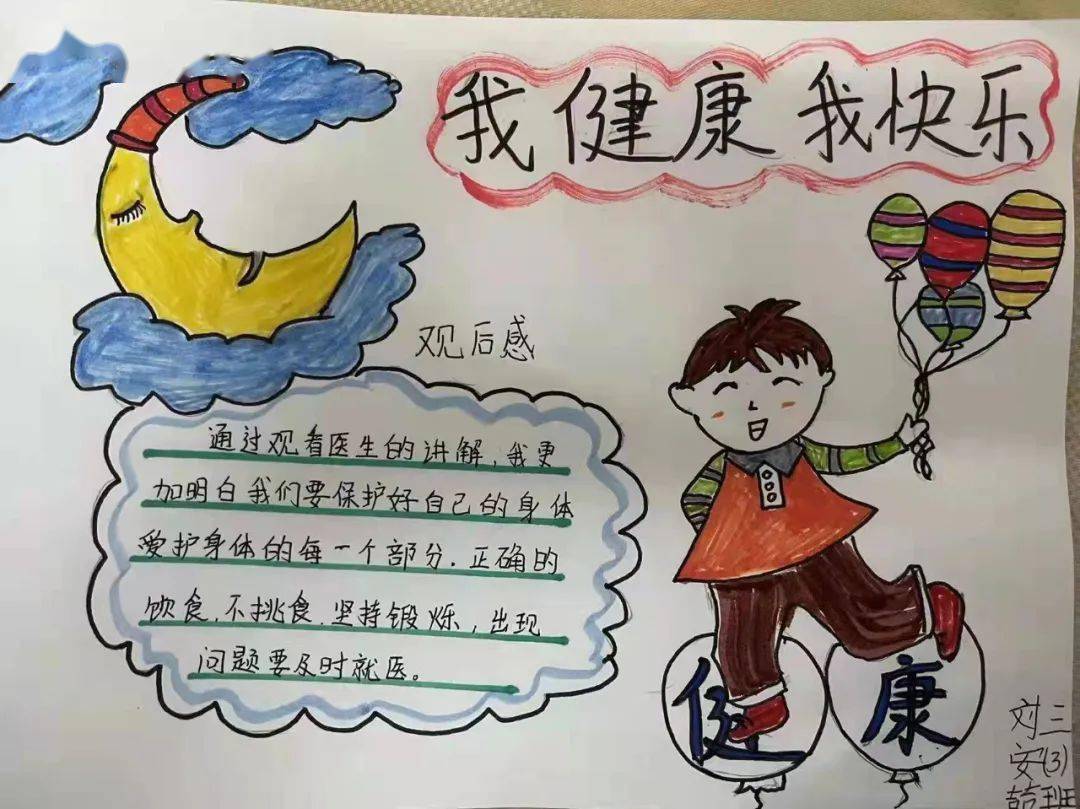 我健康 我快乐
观后感
通过观看医生的讲解，我更
加明白我们要保护好自己的身体
爱护身体的每一个部分.正确的
饮食.不挑食.坚持锻烁，出现
问题要及时就医。
健 康
三(3)班